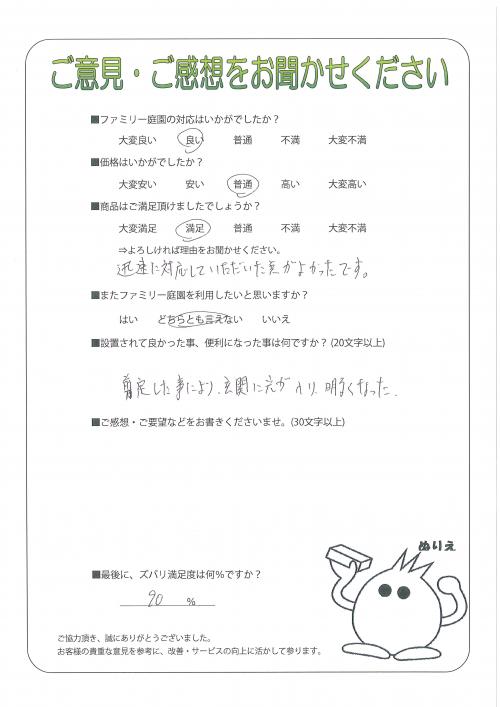 ご意見・ご感想をお聞かせください
■ファミリー庭園の対応はいかがでしたか？
大変良い 良い 普通 不満 大変不満
■価格はいかがでしたか？
大変安い 安い 普通 高い 大変高い
■商品はご満足頂けましたでしょうか？
大変満足 満足 普通 不満 大変不満
⇒よろしければ理由をお聞かせください。
迅速に対応していただいた点がよかったです。
■またファミリー庭園を利用したいと思いますか？
はい どちらとも言えない いいえ
■設置されて良かった事、便利になった事は何ですか？(20文字以上)
剪定した事により、玄関に光が入り、明るくなった。
■ご感想・ご要望などをお書きくださいませ。(30文字以上)
ぬりえ
■最後に、ズバリ満足度は何％ですか？
90 ％
ご協力頂き、誠にありがとうございました。
お客様の貴重な意見を参考に、改善・サービスの向上に活かして参ります。